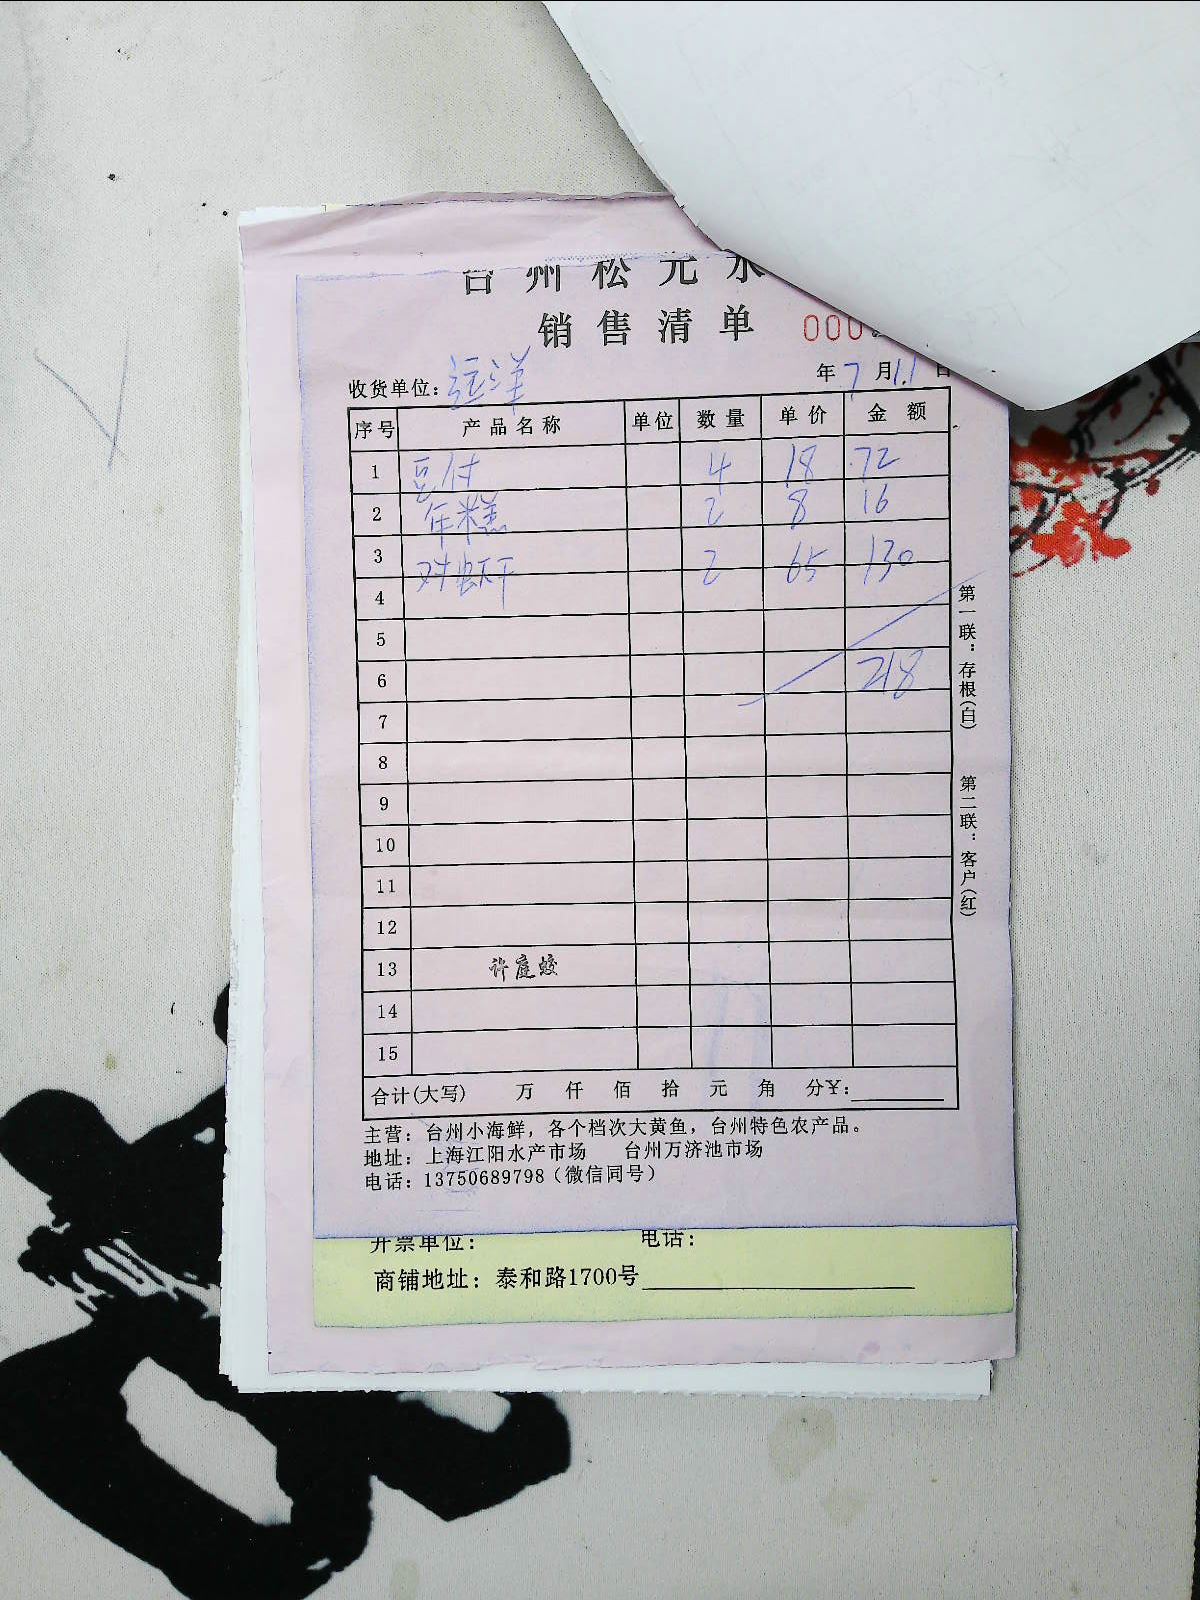 台州松元水
销售清单 000
收货单位: 汪洋 年7月11日
序号 产品名称 单位 数量 单价 金额
1 豆付 4 18 72
2 年糕 2 8 16
3 对虾干 2 65 130
4
5
6 218
7
8
9
10
11
12
13 许庭蛟
14
15
合计(大写) 万 仟 佰 拾 元 角 分¥:
主营：台州小海鲜，各个档次大黄鱼，台州特色农产品。
地址：上海江阳水产市场 台州万济池市场
电话：13750689798（微信同号）
第一联：存根(白) 第二联：客户(红)
开票单位： 电话：
商铺地址：泰和路1700号